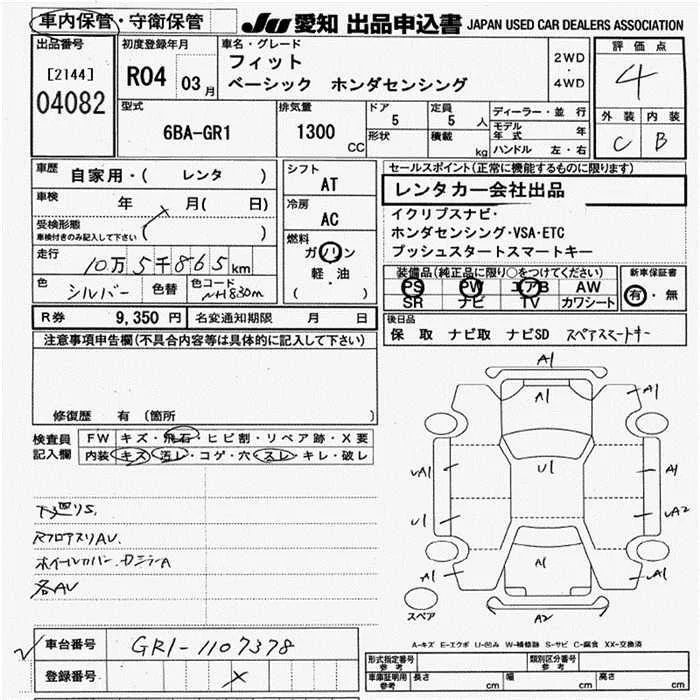 車内保管・守衛保管
JU 愛知 出品申込書 JAPAN USED CAR DEALERS ASSOCIATION
出品番号
[2144]
04082
初度登録年月
R04 03月
車名・グレード
フィット
ベーシック ホンダセンシング
2WD
・
4WD
評価点
4
外装 内装
C B
型式
6BA-GR1
排気量
1300 CC
ドア 5
形状
定員 5 人
積載 kg
ディーラー・並行
モデル年式 年
ハンドル 左・右
車歴
自家用・( レンタ )
車検 年 月( 日)
受検形態
車検付きのみ記入して下さい ( )
走行
10万5千865km
色 シルバー 色替 色コード NH830M
シフト
AT
冷房
AC
燃料
ガソリン
軽・油
( )
セールスポイント(正常に機能するものに限ります)
レンタカー会社出品
イクリプスナビ・
ホンダセンシング・VSA・ETC
プッシュスタートスマートキー
装備品(純正品に限り○をつけてください)
PS PW エアB AW
SR ナビ TV カワシート
新車保証書
有・無
R券 9,350 円 名変通知期限 月 日
後日品
保 取 ナビ取 ナビSD スペアスマートキー
注意事項申告欄(不具合内容等は具体的に記入して下さい)
修復歴 有 〔箇所 〕
検査員
記入欄
FW キズ・飛石・ヒビ割・リペア跡・X要
内装 キズ・汚レ・コゲ・穴・スレ・キレ・破レ
下廻りS.
RフロアスリAV.
ホイールカバー.
各AV
A1
A1
A1
UA1
U1
A1
U1
UA2
A1
A1
UA1
A2
スペア
A-キズ E-エクボ U-凹み W-補修跡 S-サビ C-腐食 XX-交換済
車台番号 GR1-1107378
登録番号
形式指定番号
参考
類別区分番号
参考
車庫証明用
参考
長さ cm 幅 cm 高さ cm